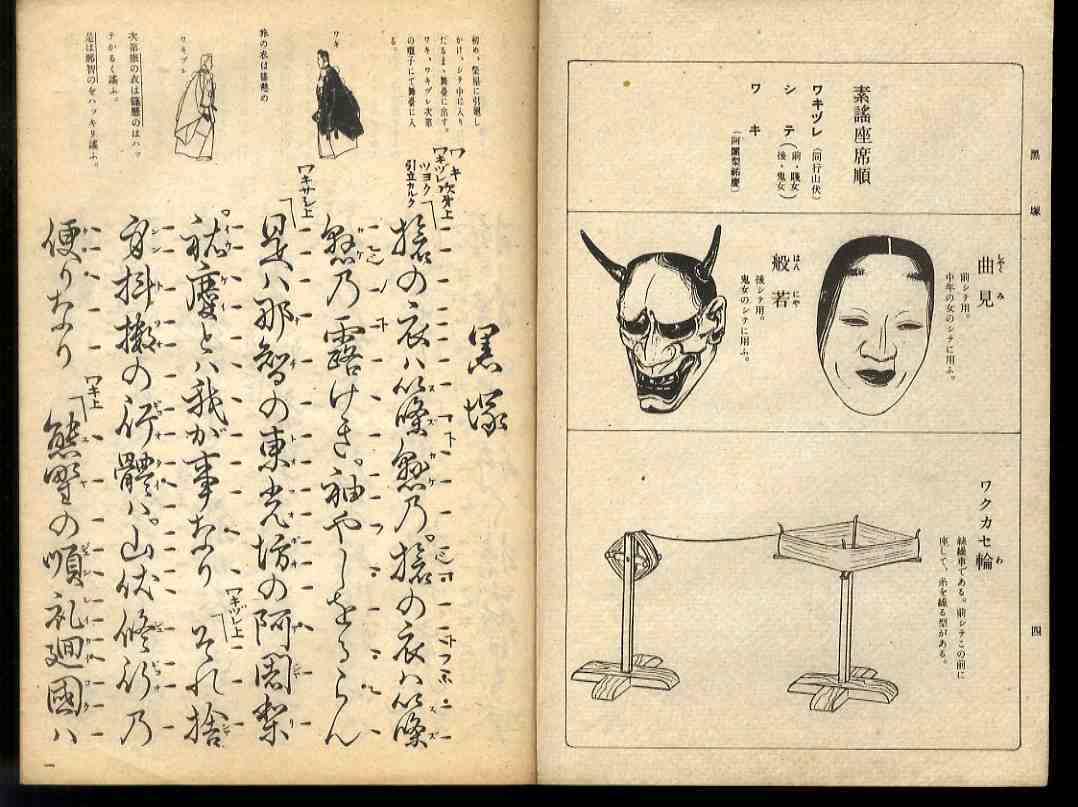 黒塚
四
素謡座席順
ワキヅレ(同行山伏)
シテ(前・賤女 後・鬼女)
ワキ
(阿闍梨祐慶)
曲見
しやくみ
前シテ用。
中年の女のシテに用ふ。
般若
はんにや
後シテ用。
鬼女のシテに用ふ。
ワクカセ輪
わ
絲繰車である。前シテこの前に
座して、糸を繰る型がある。
初め、柴屋に引廻し
かけ、シテ中に入り
たるまゝ舞臺に出す。
ワキ、ワキヅレ次第
の囃子にて舞臺に入
る。
ワキ
旅の衣は篠懸の
ワキヅレ
次第旅の衣は篠懸のはハッ
テかるく謡ふ。
是は那智のをハッキリ謡ふ。
黒塚
ワキ
ワキヅレ次第上
ツヨク
引立カルク
旅の衣ハ篠懸乃。旅の衣ハ篠
懸乃露けき。袖やしをるらん
ワキサシ上
是ハ那智の東光坊の阿闍梨
祐慶とハ我が事なり
ワキヅレ上
それ捨
身抖擻の行體ハ。山伏修行乃
便りなり
ワキ上
熊野の順礼廻國ハ
一